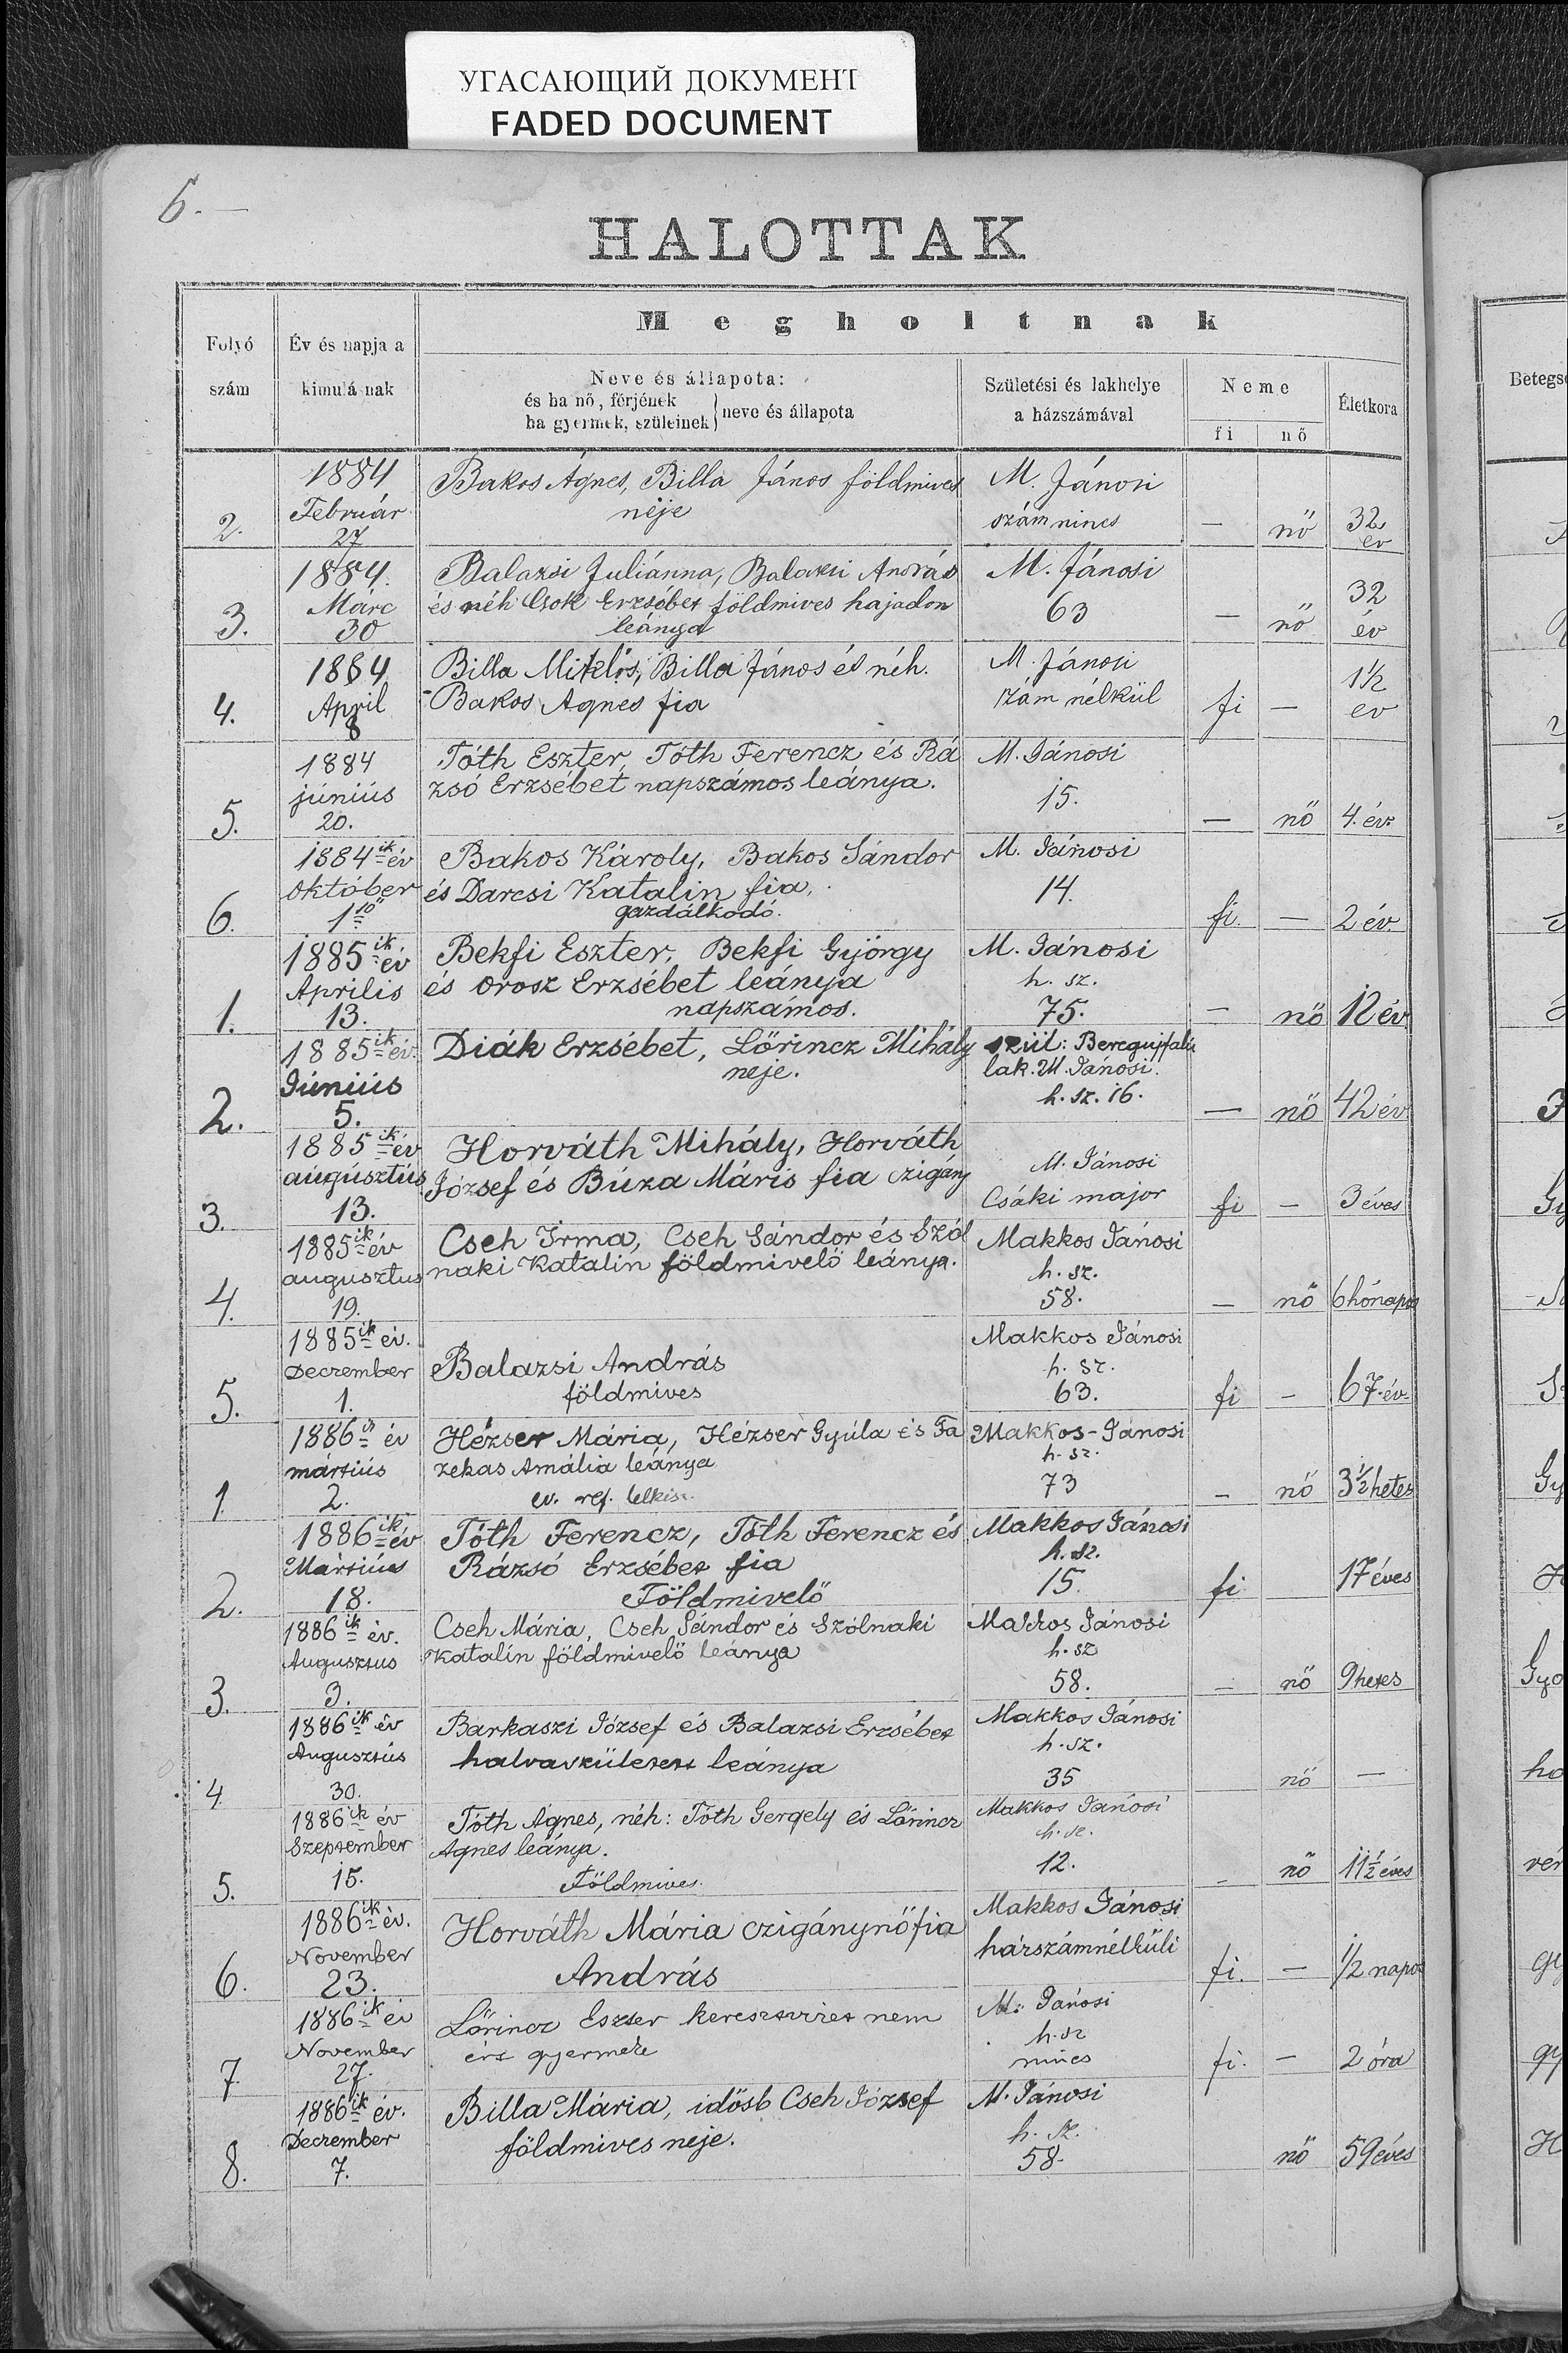 УГАСАЮЩИЙ ДОКУМЕНТ
FADED DOCUMENT
6.
HALOTTAK
Megholtnak
Folyó szám
Év és napja a kimulásnak
Neve és állapota:
és ha nő, férjének
ha gyermek, szüleinek } neve és állapota
Születési és lakhelye a házszámával
Neme
fi nő
Életkora
Betegs
2. 1884 Február 27 Bakos Ágnes, Billa János földmives M. Jánosi
neje szám nincs — nő 32 év
3. 1884. Márc 30 Balazsi Juliánna, Balazsi András M. Jánosi
és néh Csok Erzsébet földmives hajadon 63 — nő 32 év
leánya
4. 1884 April 8 Billa Miklós, Billa János és néh. M. Jánosi
Bakos Agnes fia szám nélkül fi — 1½ ev
5. 1884 június 20. Tóth Eszter, Tóth Ferencz és Rá M. Jánosi
zsó Erzsébet napszámos leánya. 15. — nő 4. év.
6. 1884 ik év október 1 Bakos Károly, Bakos Sándor M. Jánosi
és Darcsi Katalin fia, 14. fi. — 2 év.
gazdálkodó.
1. 1885 ik év Aprilis 13. Bekfi Eszter, Bekfi György M. Jánosi
és Orosz Erzsébet leánya h. sz.
napszámos. 75. — nő 12 év
2. 1885 ik év Június 5. Diák Erzsébet, Lőrincz Mihály szül: Beregujfalu
neje. lak. M. Jánosi.
h. sz. 16. — nő 42 év
3. 1885 ik év augusztus 13. Horváth Mihály, Horváth M. Jánosi
József és Búza Máris fia czigány Csáki major fi — 3 éves
4. 1885 ik év augusztus 19. Cseh Irma, Cseh Sándor és Szól Makkos Jánosi
naki Katalin földmivelő leánya. h. sz.
58. — nő 6 hónapos
5. 1885 ik év. Deczember 1. Balazsi András Makkos Jánosi
földmives h. sz.
63. fi — 67 év
1. 1886 ik év mártius 2. Hézser Mária, Hézser Gyúla és Fa Makkos-Jánosi
zekas Amália leánya h. sz.
ev. ref. lelkész. 73 — nő 3½ hetes
2. 1886 ik év Mártius 18. Tóth Ferencz, Tóth Ferencz és Makkos Jánosi
Rázsó Erzsébet fia h. sz.
Földmivelő 15. fi 17 éves
3. 1886 ik év. Augusztus 3. Cseh Mária, Cseh Sándor és Szólnaki Makkos Jánosi
Katalin földmivelő leánya h. sz
58. — nő 9 hetes
4 1886 ik év Augusztus 30. Barkaszi József és Balazsi Erzsébet Makkos Jánosi
halvaszületett leánya h. sz.
35 nő —
5. 1886 ik év Szeptember 15. Tóth Ágnes, néh: Tóth Gergely és Lőrincz Makkos Jánosi
Agnes leánya. h. sz.
Földmives. 12. — nő 11½ éves
6. 1886 ik év. November 23. Horváth Mária czigánynő fia Makkos Jánosi
András házszámnélküli fi. — 1/2 napos
7. 1886 ik év November 27. Lőrincz Eszter keresztvizet nem M. Jánosi
ért gyermeke h. sz
nincs fi. — 2 óra
8. 1886 ik év. Deczember 7. Billa Mária, idősb Cseh József M. Jánosi
földmives neje. h. sz.
58. nő 59 éves